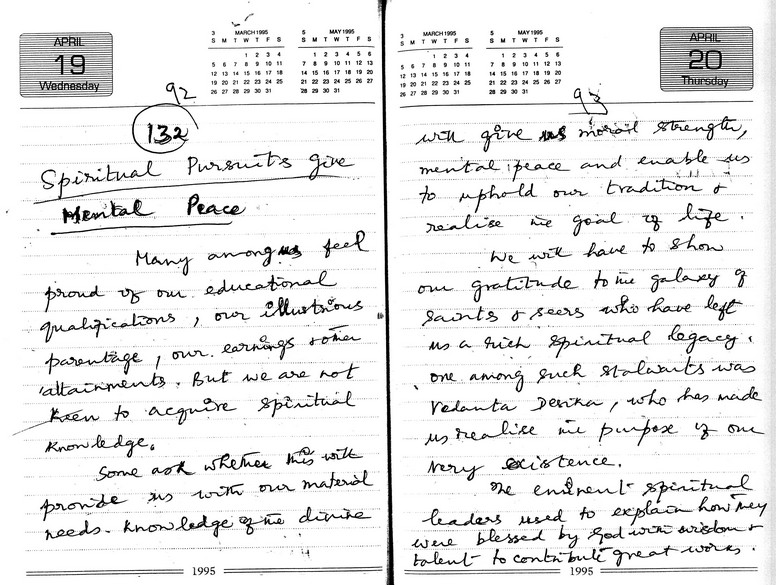 APRIL
19
Wednesday
3 MARCH 1995
S M T W T F S
1 2 3 4
5 6 7 8 9 10 11
12 13 14 15 16 17 18
19 20 21 22 23 24 25
26 27 28 29 30 31
5 MAY 1995
S M T W T F S
1 2 3 4 5 6
7 8 9 10 11 12 13
14 15 16 17 18 19 20
21 22 23 24 25 26 27
28 29 30 31
92
132
Spiritual Pursuits give
Mental Peace
Many among us feel
proud of our educational
qualifications, our illustrious
parentage, our earnings & other
attainments. But we are not
keen to acquire spiritual
knowledge.
Some ask whether this will
provide us with our material
needs. Knowledge of the divine
1995
3 MARCH 1995
S M T W T F S
1 2 3 4
5 6 7 8 9 10 11
12 13 14 15 16 17 18
19 20 21 22 23 24 25
26 27 28 29 30 31
5 MAY 1995
S M T W T F S
1 2 3 4 5 6
7 8 9 10 11 12 13
14 15 16 17 18 19 20
21 22 23 24 25 26 27
28 29 30 31
APRIL
20
Thursday
93
will give us moral strength,
mental peace and enable us
to uphold our tradition &
realise the goal of life.
We will have to show
our gratitude to the galaxy of
saints & seers who have left
us a rich spiritual legacy.
One among such stalwarts was
Vedanta Desika, who has made
us realise the purpose of our
very existence.
The eminent spiritual
leaders used to explain how they
were blessed by God with wisdom &
talent to contribute great works.
1995